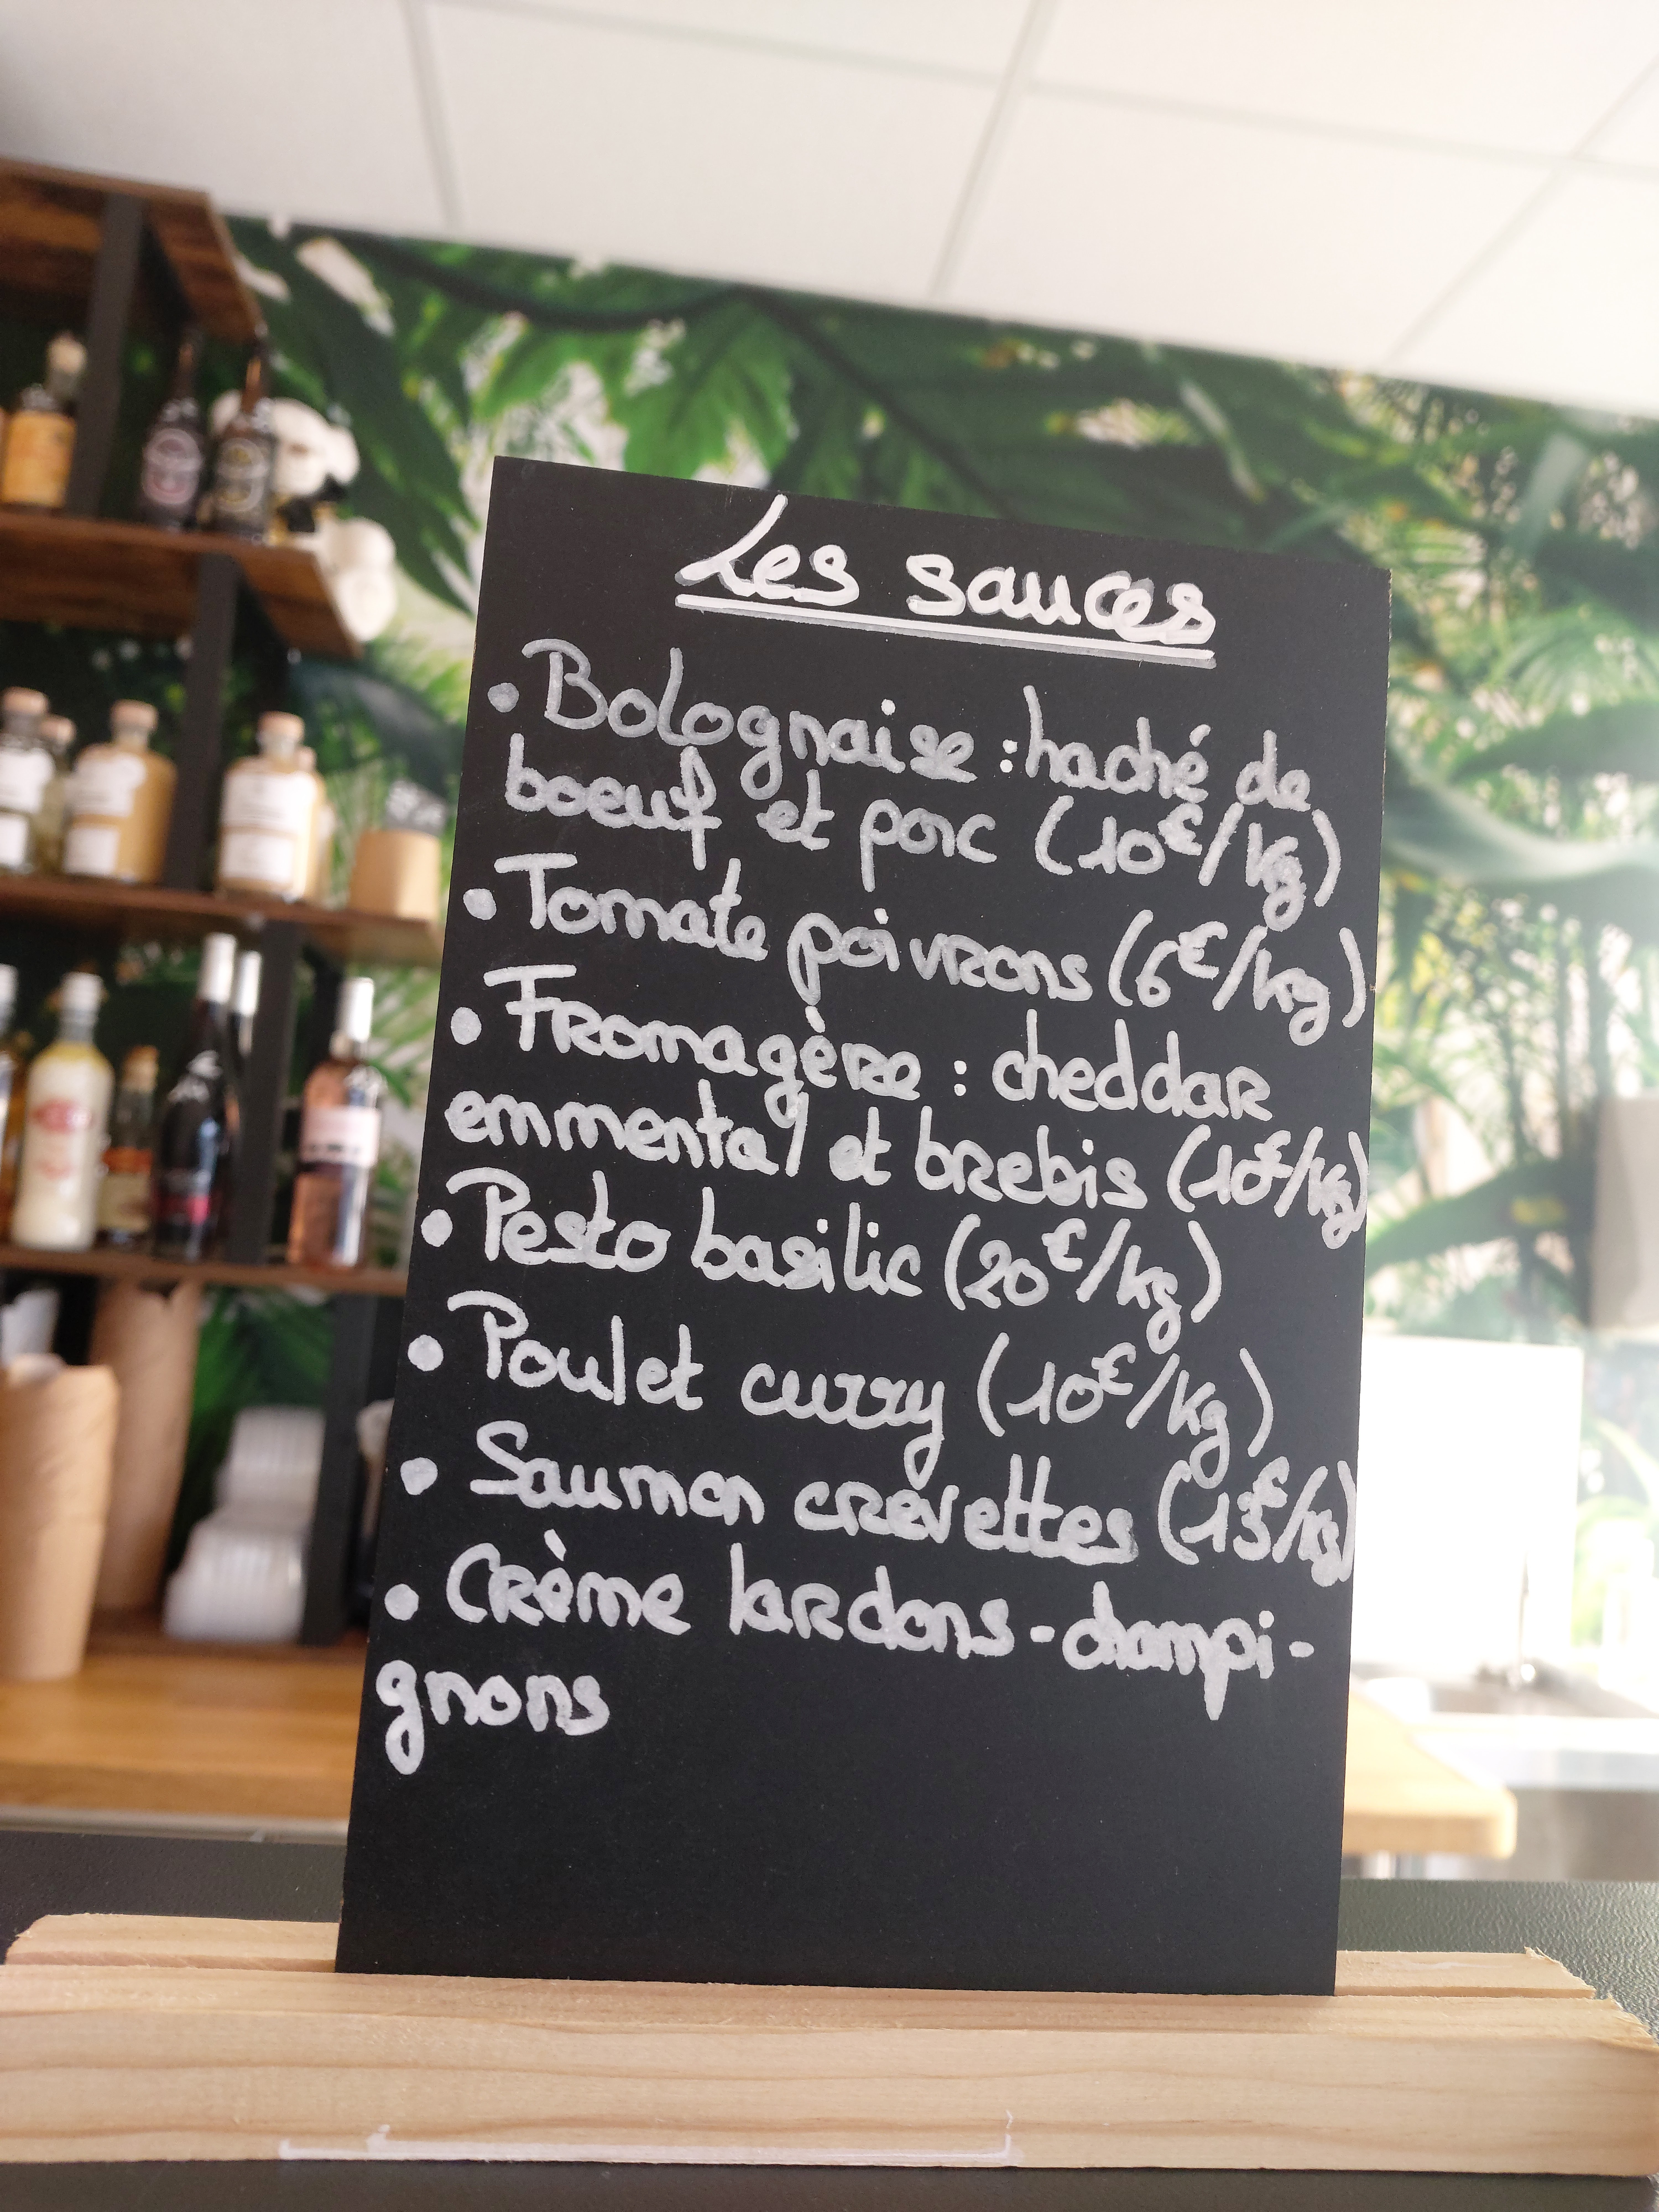 Les sauces
• Bolognaise : haché de
boeuf et porc (10€/kg)
• Tomate poivrons (6€/kg)
• Fromagère : cheddar
emmental et brebis (10€/kg)
• Pesto basilic (20€/kg)
• Poulet curry (10€/kg)
• Saumon crevettes (13€/kg)
• Crème lardons-champi-
gnons